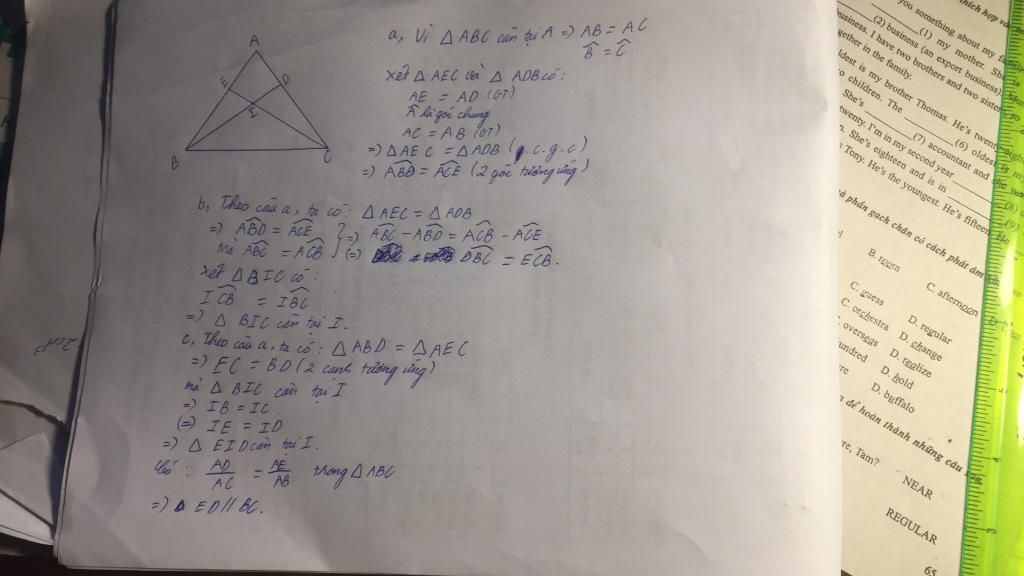 A
E
D
I
B
C
a, Vì △ABC cân tại A => AB = AC
B̂ = Ĉ
Xét △AEC và △ADB có:
AE = AD (GT)
Â là góc chung
AC = AB (GT)
=> △AEC = △ADB (c.g.c)
=> ABD = ACE (2 góc tương ứng)
b, Theo câu a, ta có: △AEC = △ADB
=> ABD = ACE } => ABC - ABD = ACB - ACE
Mà ABC = ACB } (=) DBC = ECB.
Xét △BIC có:
ICB = IBC
=> △ BIC cân tại I.
c, Theo câu a, ta có: △ABD = △AEC
=> EC = BD (2 cạnh tương ứng)
mà △ BIC cân tại I
=> IB = IC
(=) IE = ID
=> △ EID cân tại I.
Có: AD/AC = AE/AB trong △ABC
=> ED // BC.
2cm³
thích hợp vớ
you something about my fami
(1) my mother. She
(2) business (an export business)
business. I have two brothers and two sister
gether in the family.
ldest is my brother Thomas. He's twen
o children. The (6) oldest is m
She's (7) accountant and
twenty. I'm in my second year
n. She's eighteen and is in
Tony. He's the youngest. He's fifteen
(8)
(9)
phần gạch chân có cách phát âm
B. room
C. afternoon
C. guess
D. regular
C. orchestra
D. change
C. overseas
D. realize
hundred
D. hold
D. buffalo
để hoàn thành những câu
re, Tam?
NEAR
REGULAR
65
4
3